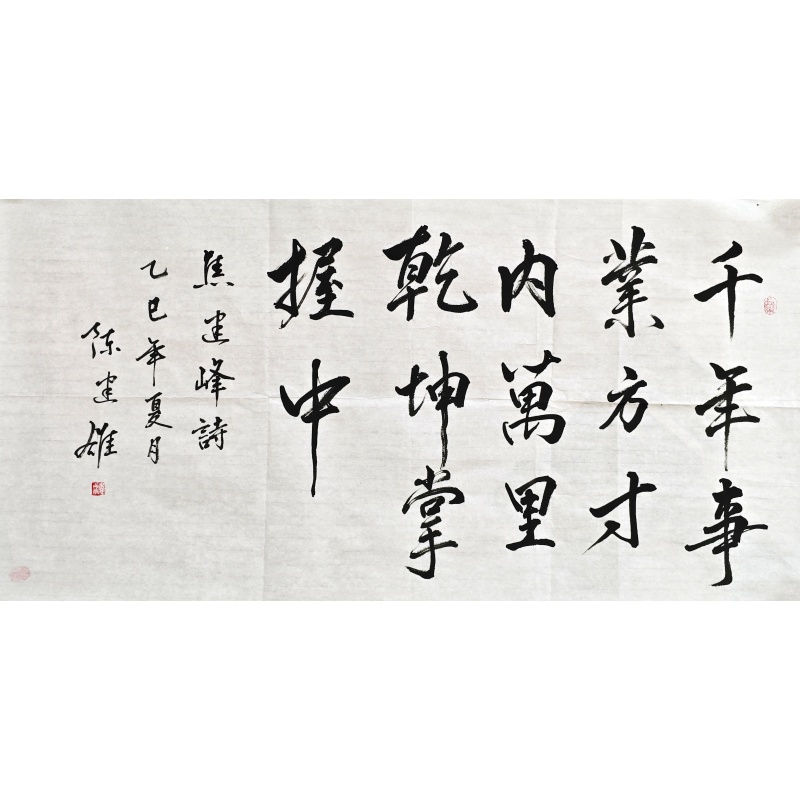 千年事
業方寸
内萬里
乾坤掌
握中
焦建峰詩
乙巳年夏月
陈建雄